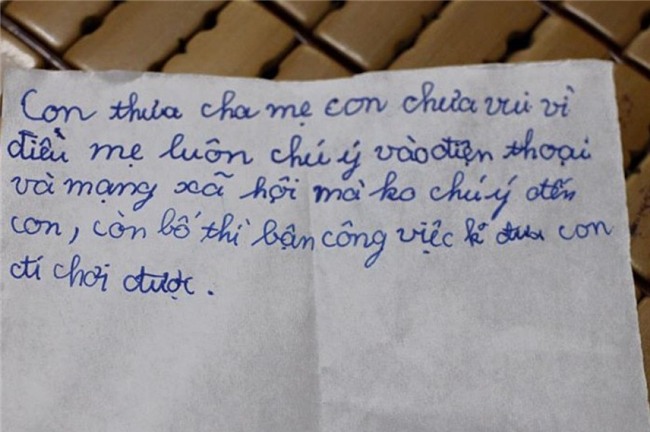 Con thưa cha mẹ con chưa vui vì
điều mẹ luôn chú ý vào điện thoại
và mạng xã hội mà ko chú ý đến
con, còn bố thì bận công việc k đưa con
đi chơi được.